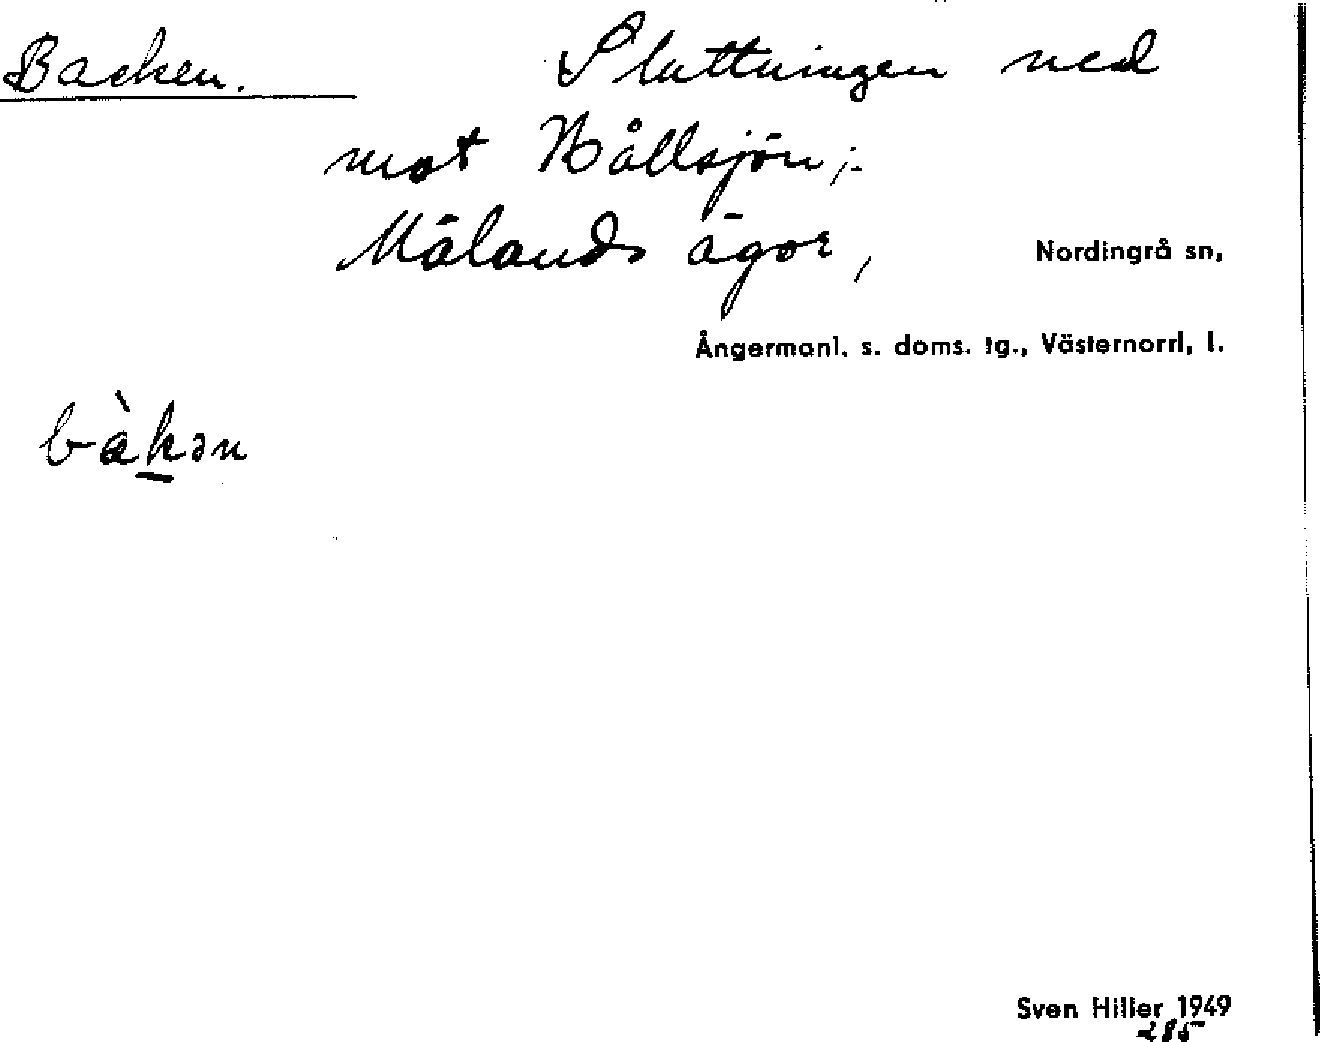 Backen. Sluttningen ned
mot Hållsjön;
Mälands ägor, Nordingrå sn,
Ångermanl. s. doms. tg., Västernorrl. l.
bàkən
Sven Hiller 1949
285